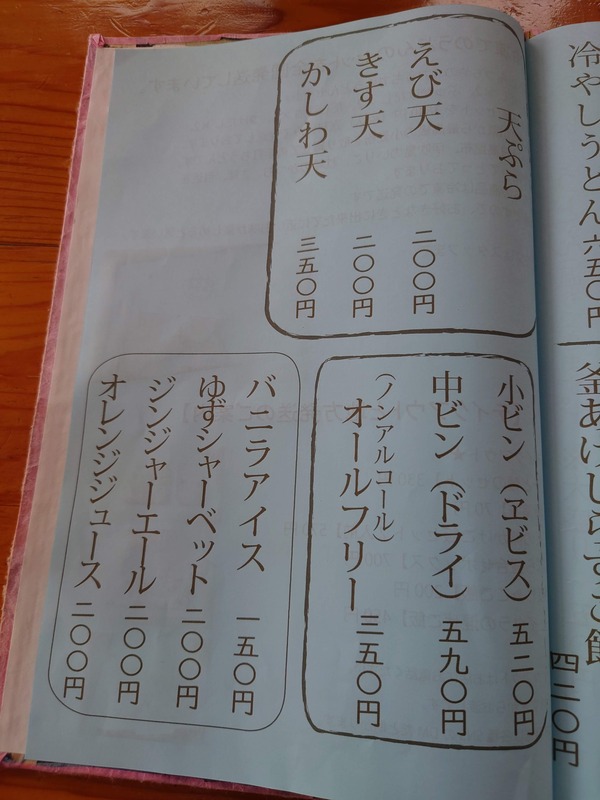 冷やしうどん 六五〇円
釜あげしらすご飯 四二〇円
天ぷら
えび天 二〇〇円
きす天 二〇〇円
かしわ天 三五〇円
小ビン（ヱビス） 五二〇円
中ビン（ドライ） 五九〇円
（ノンアルコール）
オールフリー 三五〇円
バニラアイス 一五〇円
ゆずシャーベット 二〇〇円
ジンジャーエール 二〇〇円
オレンジジュース 二〇〇円